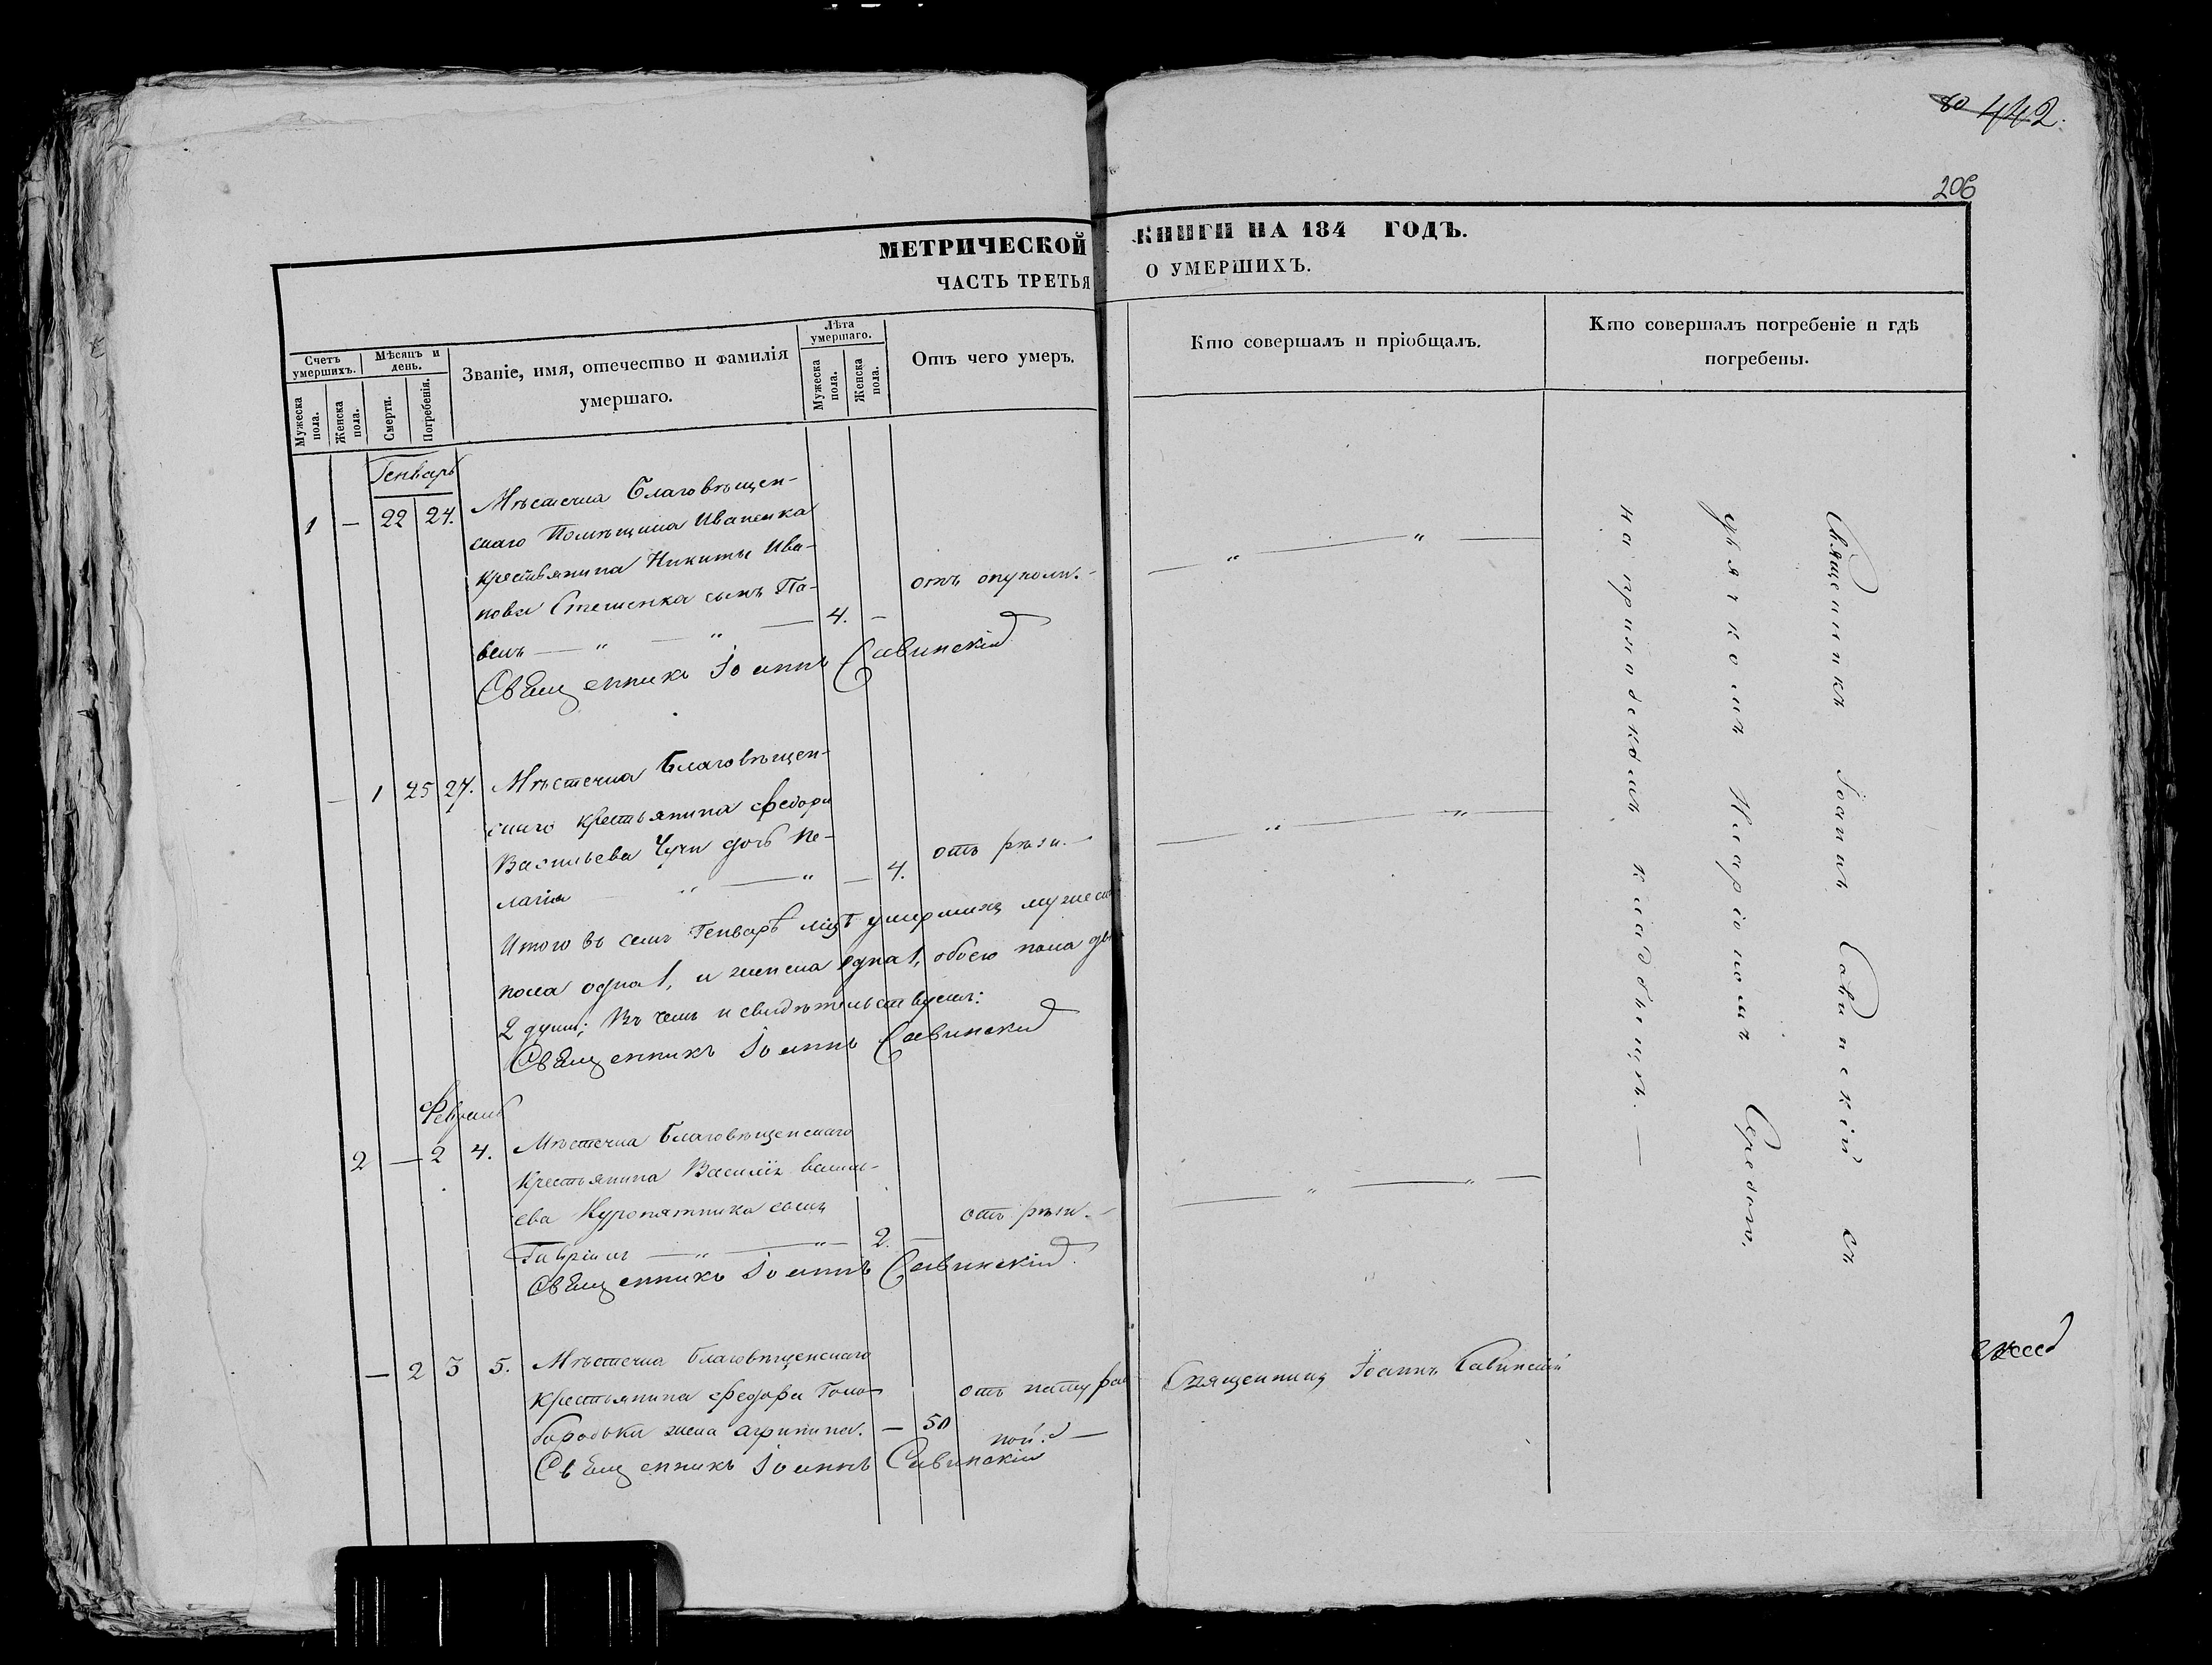 80 442.
206
МЕТРИЧЕСКОЙ КНИГИ НА 184 ГОДЪ.
ЧАСТЬ ТРЕТЬЯ О УМЕРШИХЪ.
Счетъ умершихъ.
Мѣсяцъ и день.
Званіе, имя, отечество и фамилія умершаго.
Лѣта умершаго.
Отъ чего умеръ.
Кто совершалъ и пріобщалъ.
Кто совершалъ погребеніе и гдѣ погребены.
Мужеска пола.
Женска пола.
Смерти.
Погребенія.
Мужеска пола.
Женска пола.
Генварь
1 — 22 24. Мѣстечка Благовѣщен-
скаго Помѣщика Иваненка
крестьянина Никиты Ива-
нова Стешенка сынъ Па-
велъ — " — " — 4. — отъ опухоли. —
— " — " —
Священникъ Іоаннъ Савинскій
— 1 25 27. Мѣстечка Благовѣщен-
скаго крестьянина Федора
Васильева Чучи дочь Пе-
лагія " — " — 4. отъ рѣзи. —
— " — " —
Итого въ семъ Генварѣ мцѣ умершихъ мужеска
пола одна 1, и женска одна 1, обоего пола двѣ
2 души; Въ чемъ и свидѣтельствуемъ:
Священникъ Іоаннъ Савинскій
Февраль
2 — 2 4. Мѣстечка Благовѣщенскаго
Крестьянина Василія Василь-
ева Куропятника сынъ
Гавріилъ — " — " — 2. — отъ рѣзи. —
— " — " —
Священникъ Іоаннъ Савинскій
— 2 3 5. Мѣстечка Благовѣщенскаго
Крестьянина Федора Голо-
бородька жена Агрипина. — 50 отъ натураль
ной. —
Священникъ Іоаннъ Савинскій
Священникъ Іоаннъ Савинскій
Священникъ Іоаннъ Савинскій съ
дьячкомъ Иларіономъ Середою.
на приходскомъ кладбищѣ. —